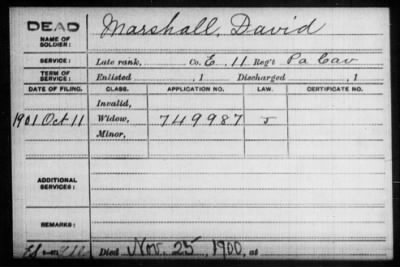 DEAD
NAME OF SOLDIER:
Marshall, David
SERVICE:
Late rank, Co. E. 11 Reg't Pa Cav
TERM OF SERVICE:
Enlisted , 1 Discharged , 1
DATE OF FILING. CLASS. APPLICATION NO. LAW. CERTIFICATE NO.
Invalid,
1901 Oct 11 Widow, 749987
Minor,
ADDITIONAL SERVICES:
REMARKS:
Died Nov. 25, 1900, at